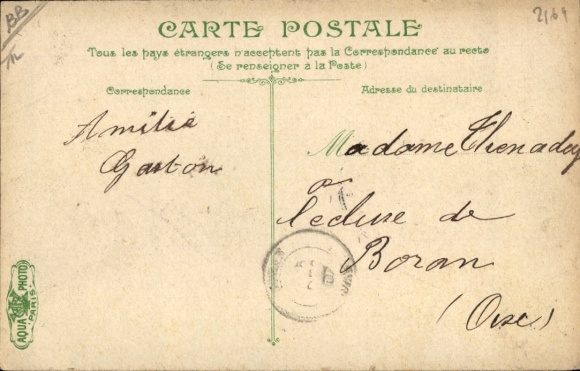 BB
2169
CARTE POSTALE
Tous les pays étrangers n'acceptent pas la Correspondance au recto
(Se renseigner à la Poste)
Correspondance
Adresse du destinataire
Amitié
Gaston
Madame Thenadey
a
l'ecluse de
Boran
(Oise)
AQUA PHOTO
PARIS